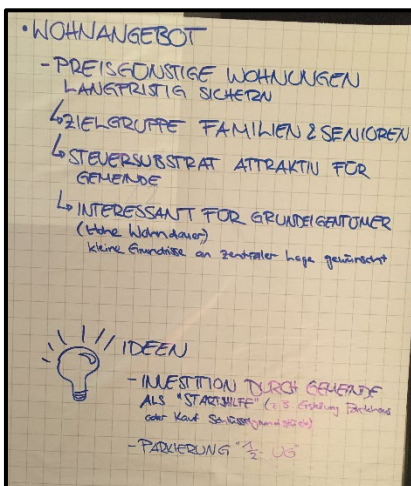 • WOHNANGEBOT
- PREISGÜNSTIGE WOHNUNGEN
LANGFRISTIG SICHERN
↳ ZIELGRUPPE FAMILIEN & SENIOREN
↳ STEUERSUBSTRAT ATTRAKTIV FÜR
GEMEINDE
↳ INTERESSANT FÜR GRUNDEIGENTÜMER
(Hohe Wohndauer)
kleine Grundrisse an zentraler Lage gewünscht
IDEEN
- INVESTITION DURCH GEMEINDE
ALS "STARTHILFE" (z.B. Erstellung Parkhaus
oder Kauf Schlüsselgrundstücke)
- PARKIERUNG "½ - UG"